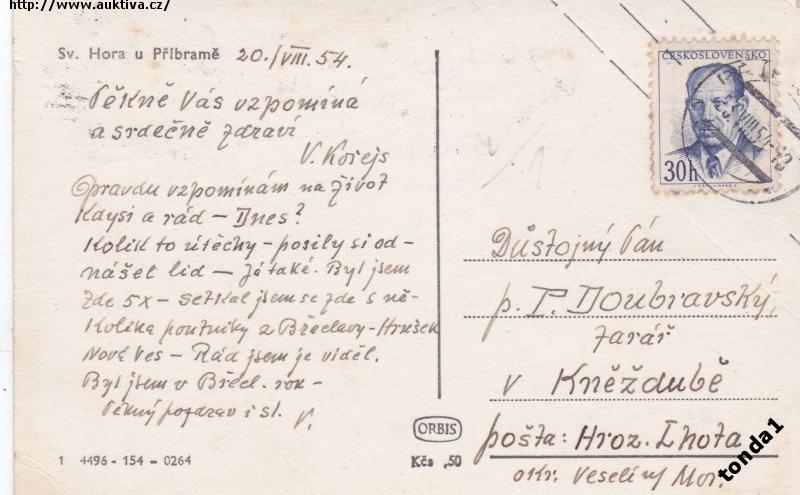 http://www.auktiva.cz/
Sv. Hora u Příbramě 20./VIII.54.
Pěkně Vás vzpomíná
a srdečně zdraví
V. Kořejs
Opravdu vzpomínám na život
kdysi a rád – Dnes?
Kolik to útěchy – posily si od-
nášel lid – já také. Byl jsem
zde 5x – setkal jsem se zde s ně-
kolika poutníky z Břeclavy – Hrušek
Nové Ves – Rád jsem je viděl.
Byl jsem v Břecl. rok –
Pěkný pozdrav i sl. V.
1 4496 - 154 - 0264
ORBIS
Kčs ,50
ČESKOSLOVENSKO
30h
Důstojný Pán
p. P. Doubravský,
farář
v Kněždubě
pošta: Hroz. Lhota
okr. Veselí n/ Mor.
tonda1